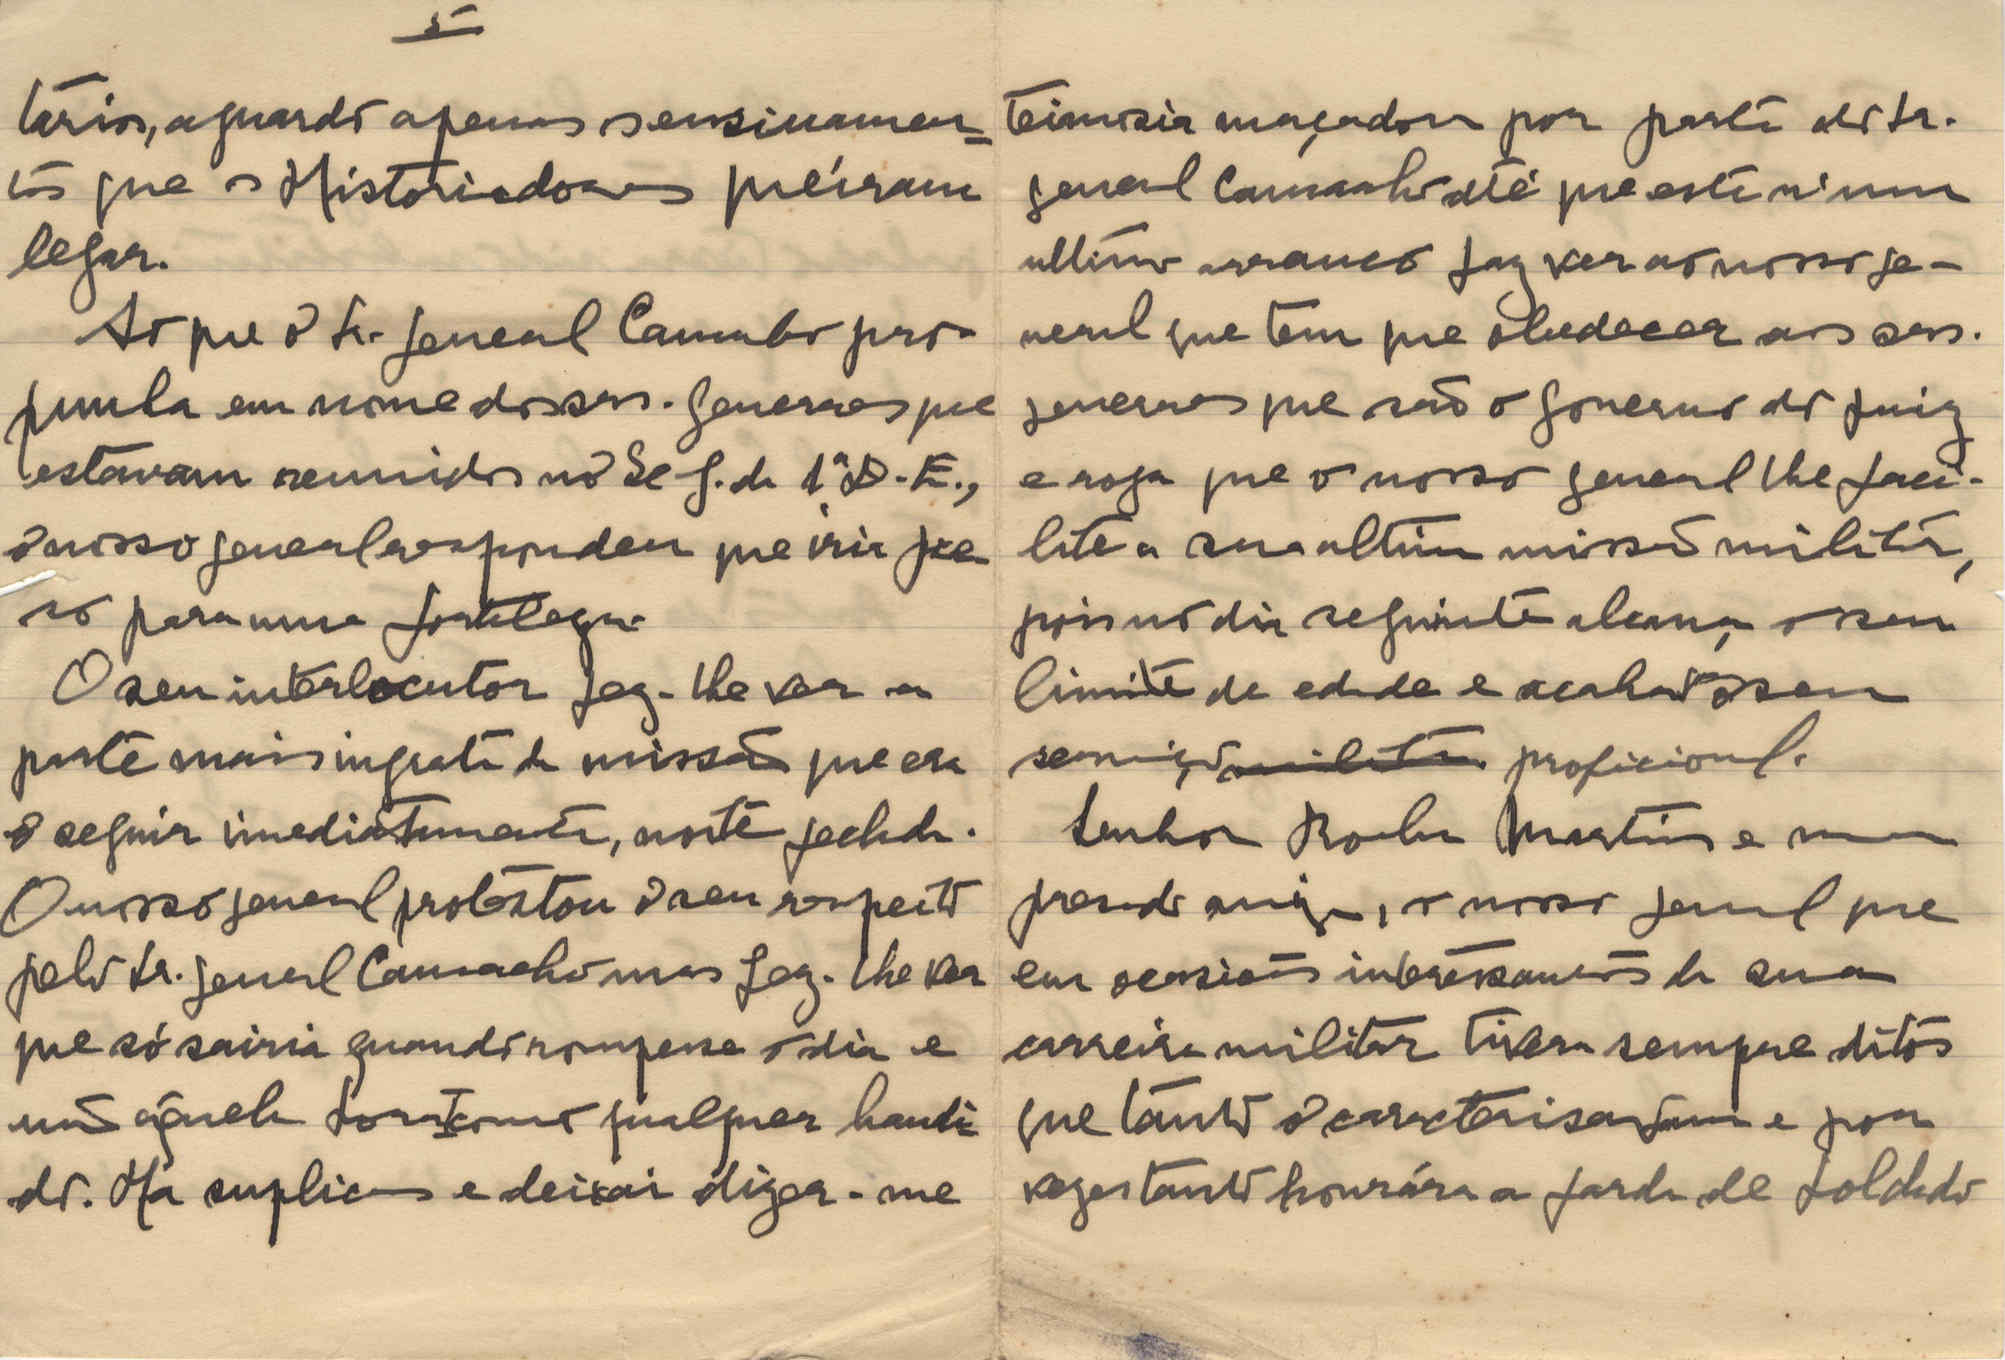 5
tários, aguardo apenas os ensinamen-
tos que os Historiadores quéiram
legar.
Ao que o Sr. general Camacho pro-
punha em nome dos srs. generaes que
estavam reunidos no Q. G. da 1ª D. E.,
o nosso general respondeu que iria pre
so para uma fortalega.
O seu interlocutor fez-lhe ver a
parte mais ingrata da missão que era
o seguir imediatamente, noite fechada.
O nosso general protestou o seu respeito
pelo Sr. general Camacho mas fez-lhe ver
que só sairia quando rompesse o dia e
não áquela hora como qualquer bandi
do. Ha suplicas e deixai dizer-me
teimosia maçadora por parte do Sr.
general Camacho até que este n'um
ultimo arranco faz ver ao nosso ge-
neral que tem que obedecer aos srs.
generaes que são o governo do paiz
e roga que o nosso general lhe faci-
lite a sua ultima missão militar,
pois no dia seguinte alcança o seu
limite de edade e acabado o seu
serviço militar proficional.
Senhor Rocha Martins e meu
presado amigo, o nosso general que
em ocasiões interessantes da sua
carreira militar tivera sempre ditos
que tanto o caracterisavam e por
vezes tanto honrára a farda de Soldado